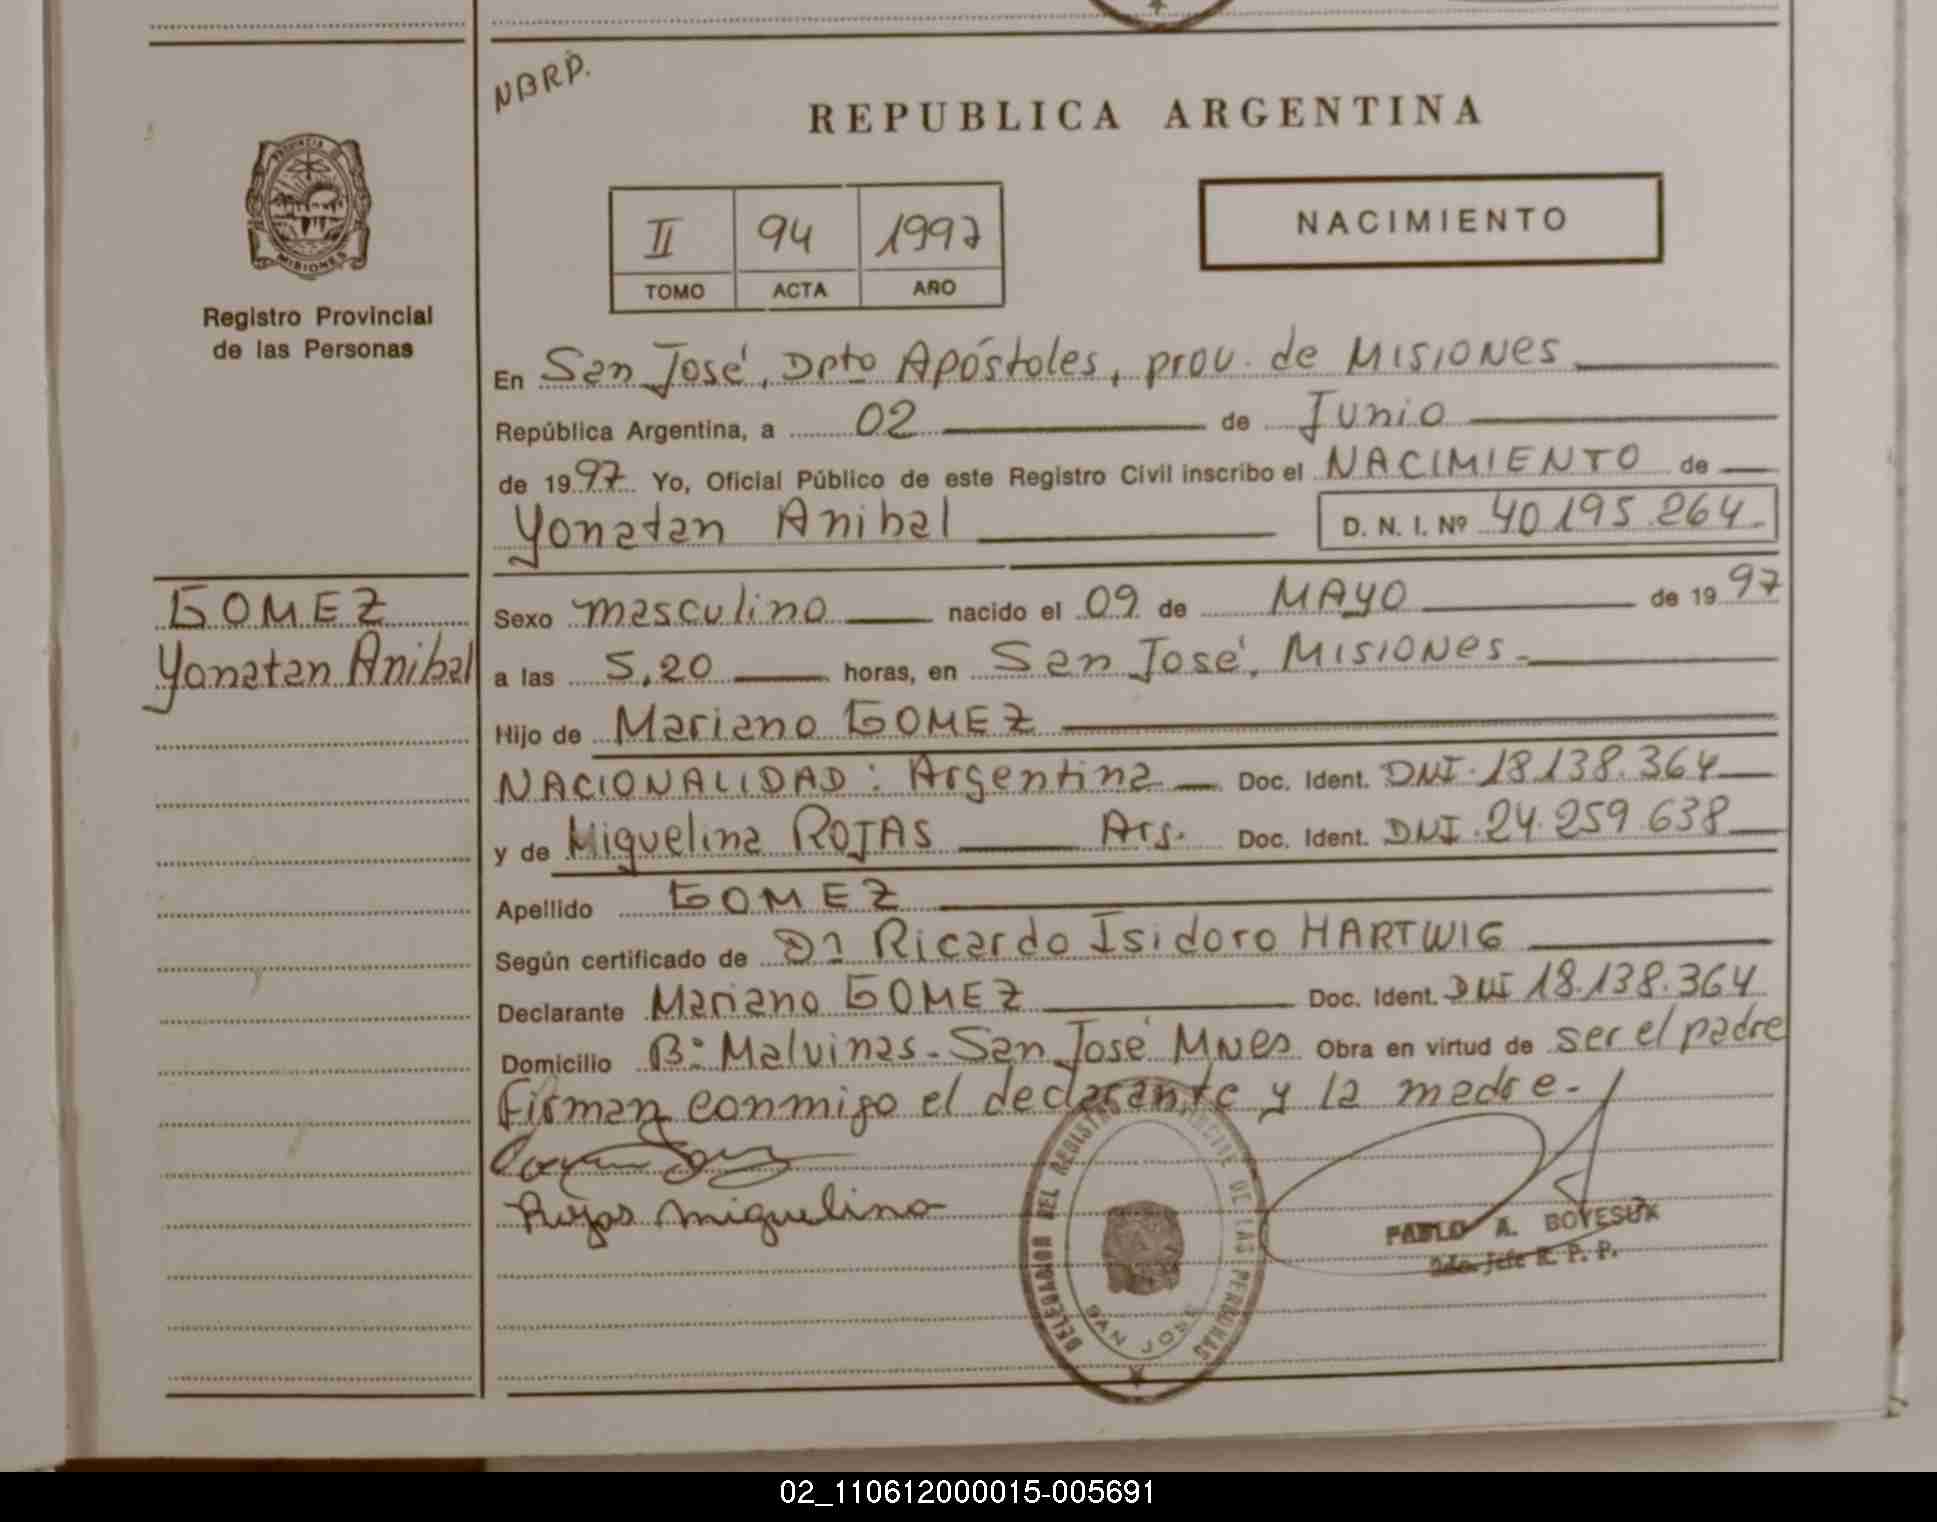 NBRP.
REPUBLICA ARGENTINA
PROVINCIA DE
MISIONES
Registro Provincial
de las Personas
II 94 1997
TOMO ACTA AÑO
NACIMIENTO
En San José, Dpto Apóstoles, prov. de MISIONES
República Argentina, a 02 de Junio
de 1997 Yo, Oficial Público de este Registro Civil inscribo el NACIMIENTO de
Yonatan Anibal D. N. I. Nº 40195.264.
GOMEZ
Yonatan Anibal
Sexo masculino nacido el 09 de MAYO de 1997
a las 5,20 horas, en San José, MISIONES.
Hijo de Mariano GOMEZ
NACIONALIDAD: Argentina Doc. Ident. DNI. 18.138.364
y de Miguelina ROJAS Arg. Doc. Ident. DNI. 24.259.638
Apellido GOMEZ
Según certificado de Dr Ricardo Isidoro HARTWIG
Declarante Mariano GOMEZ Doc. Ident. DNI 18.138.364
Domicilio Bº Malvinas - San José Mnes Obra en virtud de ser el padre
Firman conmigo el declarante y la madre.
Rojas Miguelina
DELEGACION DEL REGISTRO PROVINCIAL DE LAS PERSONAS
SAN JOSE
PABLO A. BOYESUK
2do. Jefe R. P. P.
02_110612000015-005691